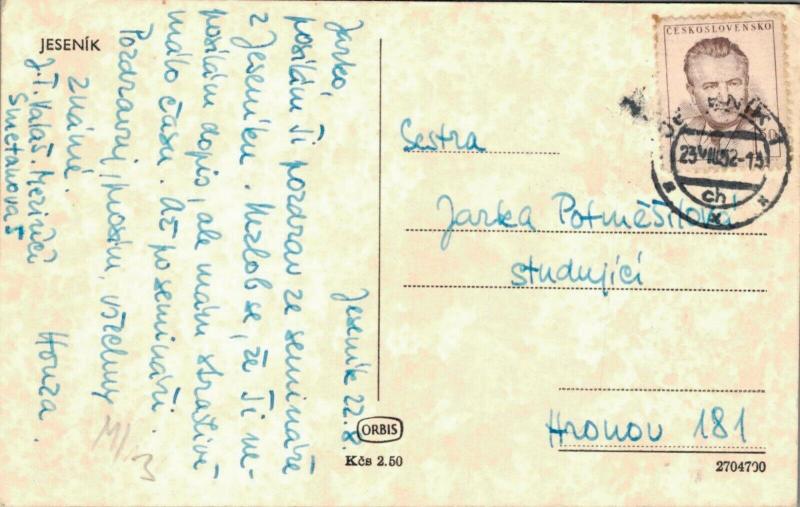 JESENÍK
Jeseník 22.8.
Jarko,
posílám Ti pozdrav ze semináře
z Jeseníku. Nezlob se, že Ti ne-
posílám dopis, ale mám strašně
málo času. Až po semináři.
Pozdravuj, prosím, všechny
známé.
Honza.
J.T. Valaš. Meziříčí
Smetanova
ORBIS
Kčs 2.50
ČESKOSLOVENSKO
JESENÍK 1
23.VIII.52-13
ch
Sestra
Jarka Potměšilová
studující
Hronov 181
2704700